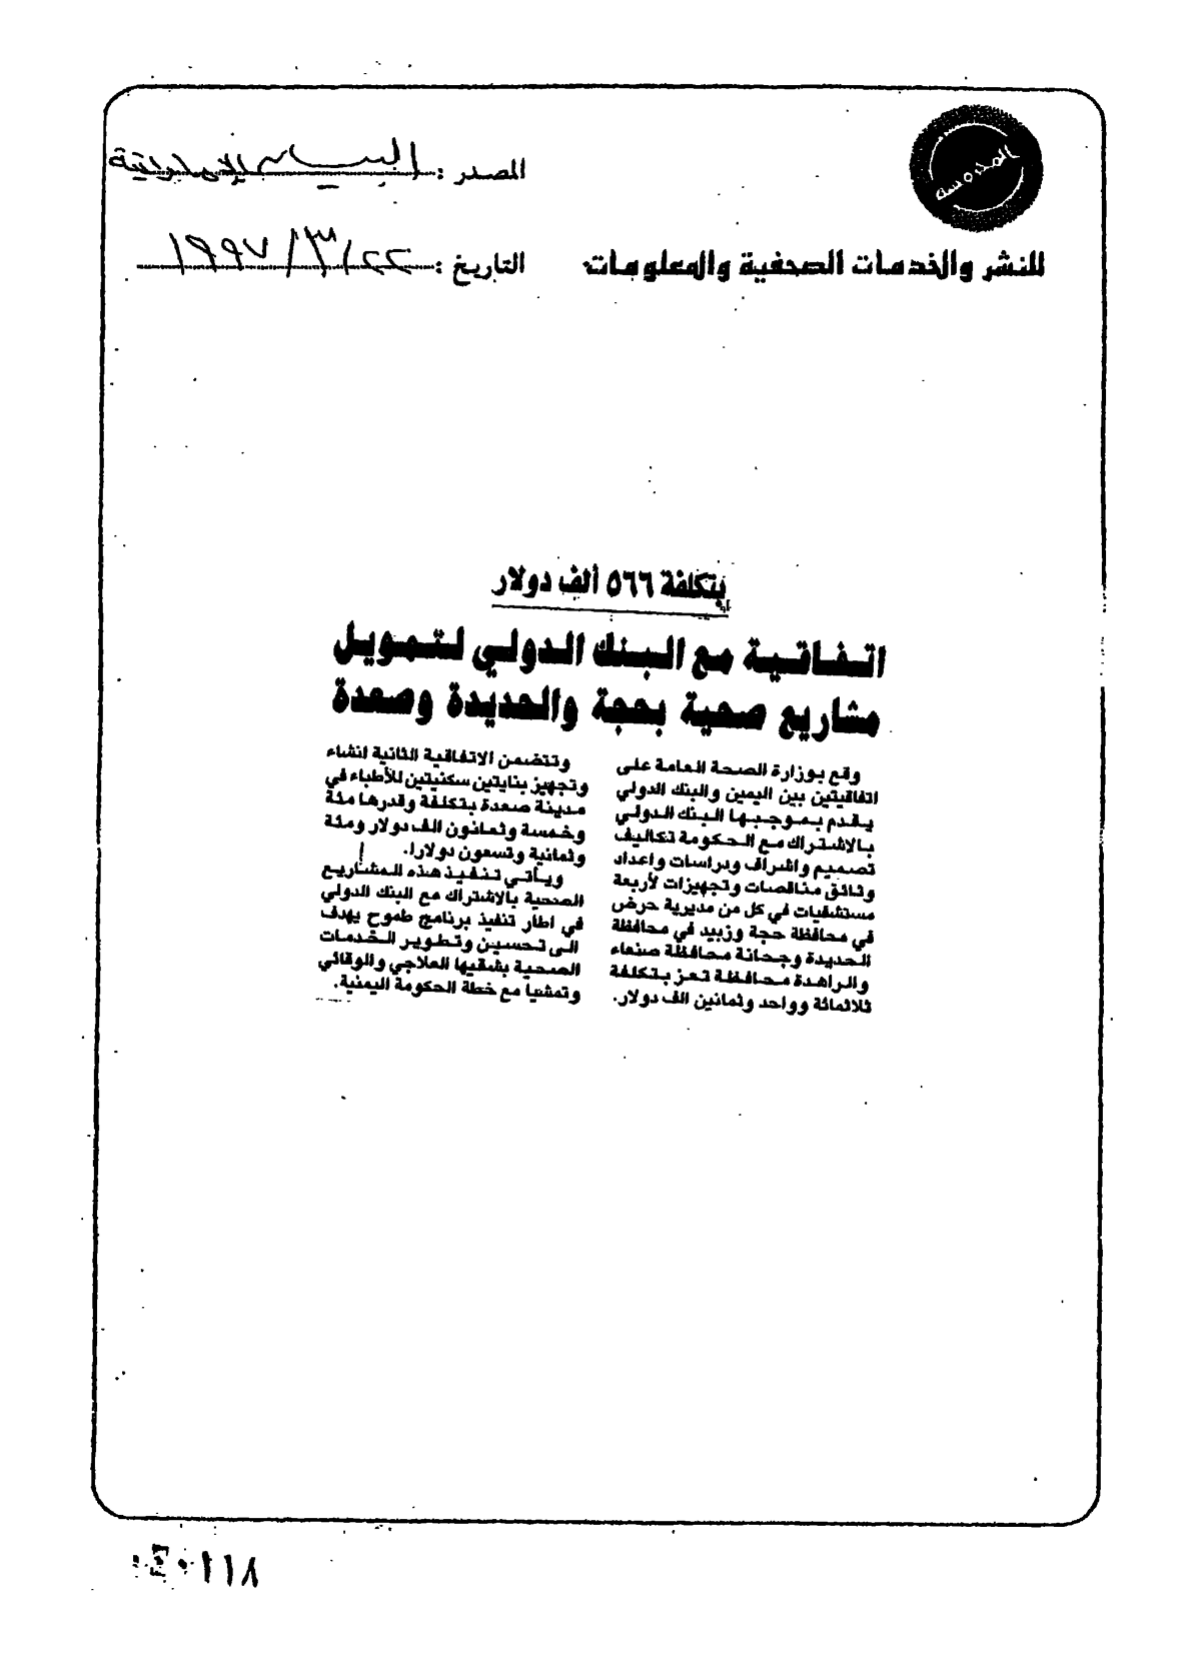 المدرسة
للنشر والخدمات الصحفية والمعلومات
المصدر : البيان الإماراتية
التاريخ : ٢٢/٣/١٩٩٧
بتكلفة ٥٦٦ ألف دولار
اتفاقية مع البنك الدولي لتمويل
مشاريع صحية بحجة والحديدة وصعدة
وقع بوزارة الصحة العامة على
اتفاقيتين بين اليمين والبنك الدولي
يقدم بموجبها البنك الدولي
بالاشتراك مع الحكومة تكاليف
تصميم واشراف ودراسات واعداد
وثائق مناقصات وتجهيزات لأربعة
مستشفيات في كل من مديرية حرض
في محافظة حجة وزبيد في محافظة
الحديدة وجحانة محافظة صنعاء
والراهدة محافظة تعز بتكلفة
ثلاثمائة وواحد وثمانين الف دولار.
وتتضمن الاتفاقية الثانية انشاء
وتجهيز بنايتين سكنيتين للأطباء في
مدينة صعدة بتكلفة وقدرها مئة
وخمسة وثمانون الف دولار ومئة
وثمانية وتسعون دولارا.
ويأتي تنفيذ هذه المشاريع
الصحية بالاشتراك مع البنك الدولي
في اطار تنفيذ برنامج طموح يهدف
الى تحسين وتطوير الخدمات
الصحية بشقيها العلاجي والوقائي
وتمشيا مع خطة الحكومة اليمنية.
١١٨